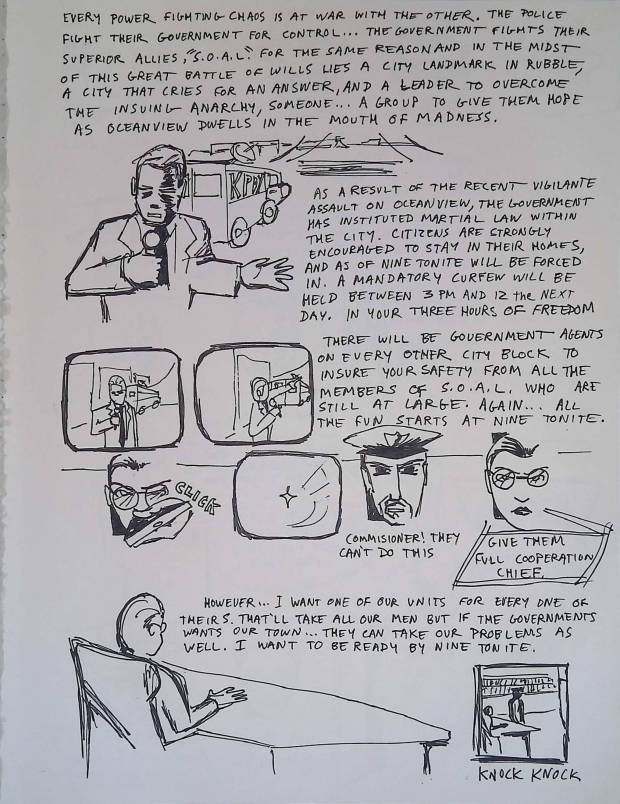 EVERY POWER FIGHTING CHAOS IS AT WAR WITH THE OTHER. THE POLICE
FIGHT THEIR GOVERNMENT FOR CONTROL... THE GOVERNMENT FIGHTS THEIR
SUPERIOR ALLIES, "S.O.A.L." FOR THE SAME REASON AND IN THE MIDST
OF THIS GREAT BATTLE OF WILLS LIES A CITY LANDMARK IN RUBBLE,
A CITY THAT CRIES FOR AN ANSWER, AND A LEADER TO OVERCOME
THE INSUING ANARCHY, SOMEONE... A GROUP TO GIVE THEM HOPE
AS OCEANVIEW DWELLS IN THE MOUTH OF MADNESS.
AS A RESULT OF THE RECENT VIGILANTE
ASSAULT ON OCEANVIEW, THE GOVERNMENT
HAS INSTITUTED MARTIAL LAW WITHIN
THE CITY. CITIZENS ARE STRONGLY
ENCOURAGED TO STAY IN THEIR HOMES,
AND AS OF NINE TONITE WILL BE FORCED
IN. A MANDATORY CURFEW WILL BE
HELD BETWEEN 3 PM AND 12 the NEXT
DAY. IN YOUR THREE HOURS OF FREEDOM
THERE WILL BE GOVERNMENT AGENTS
ON EVERY OTHER CITY BLOCK TO
INSURE YOUR SAFETY FROM ALL THE
MEMBERS OF S.O.A.L. WHO ARE
STILL AT LARGE. AGAIN... ALL
THE FUN STARTS AT NINE TONITE.
CLICK
COMMISIONER! THEY
CAN'T DO THIS
GIVE THEM
FULL COOPERATION
CHIEF.
HOWEVER... I WANT ONE OF OUR UNITS FOR EVERY ONE OF
THEIRS. THAT'LL TAKE ALL OUR MEN BUT IF THE GOVERNMENTS
WANTS OUR TOWN... THEY CAN TAKE OUR PROBLEMS AS
WELL. I WANT TO BE READY BY NINE TONITE.
KNOCK KNOCK